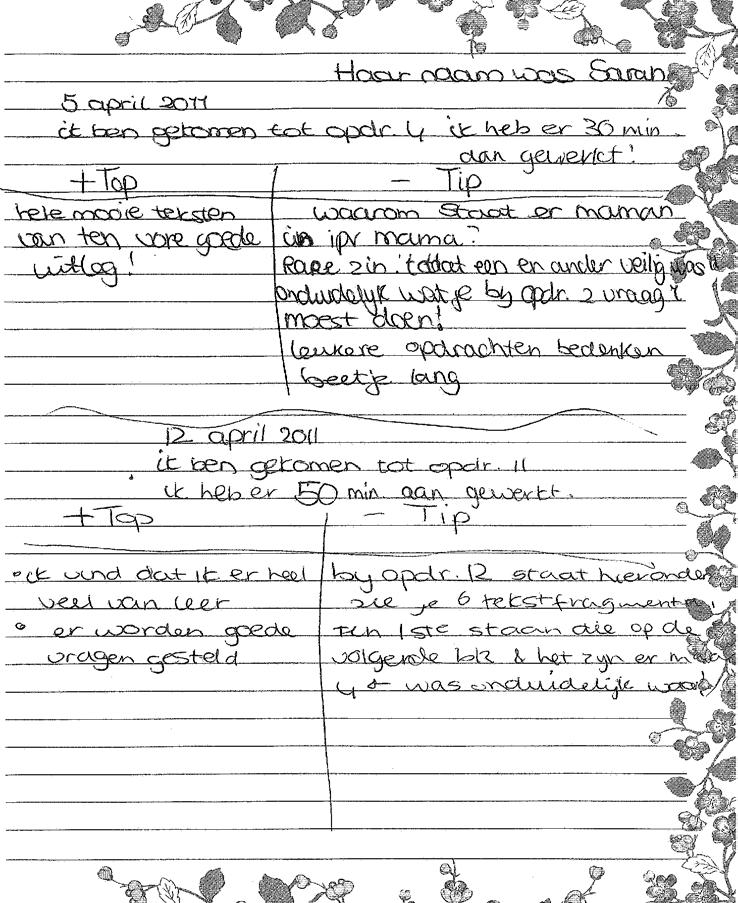 Haar naam was Sarah
5 april 2011
ik ben gekomen tot opdr. 4 ik heb er 30 min.
aan gewerkt!
+ Top
- Tip
hele mooie teksten
van ten vore goede
uitleg!
waarom staat er maman
in ipv mama?
Rare zin 'totdat een en ander veilig was'
onduidelyk wat je by opdr. 2 vraag 1
moest doen!
leukere opdrachten bedenken
beetje lang
12 april 2011
ik ben gekomen tot opdr. 11
ik heb er 50 min. aan gewerkt.
+ Top
- Tip
° ik vind dat ik er heel
veel van leer
° er worden goede
vragen gesteld
by opdr. 12 staat hieronder
zie je 6 tekstfragmenten,
ten 1ste staan die op de
volgende blz & het zyn er maar
4 & was onduidelijk